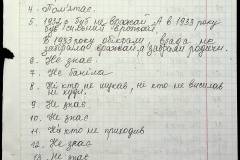 4. Пам'ятає.
5. 1932 р був не врожай. А в 1933 року
був сильний врожай.
В 1933 року обікрали, влада не
забрала врожай, а забрали родичі.
6. Не знає.
7. Не бачила
8. Ні хто не шукав, ні хто не висилав
ні куди.
9. Не знає
10. Не знає
11. Ні хто не приходив
12. Не знає
13. Не знає